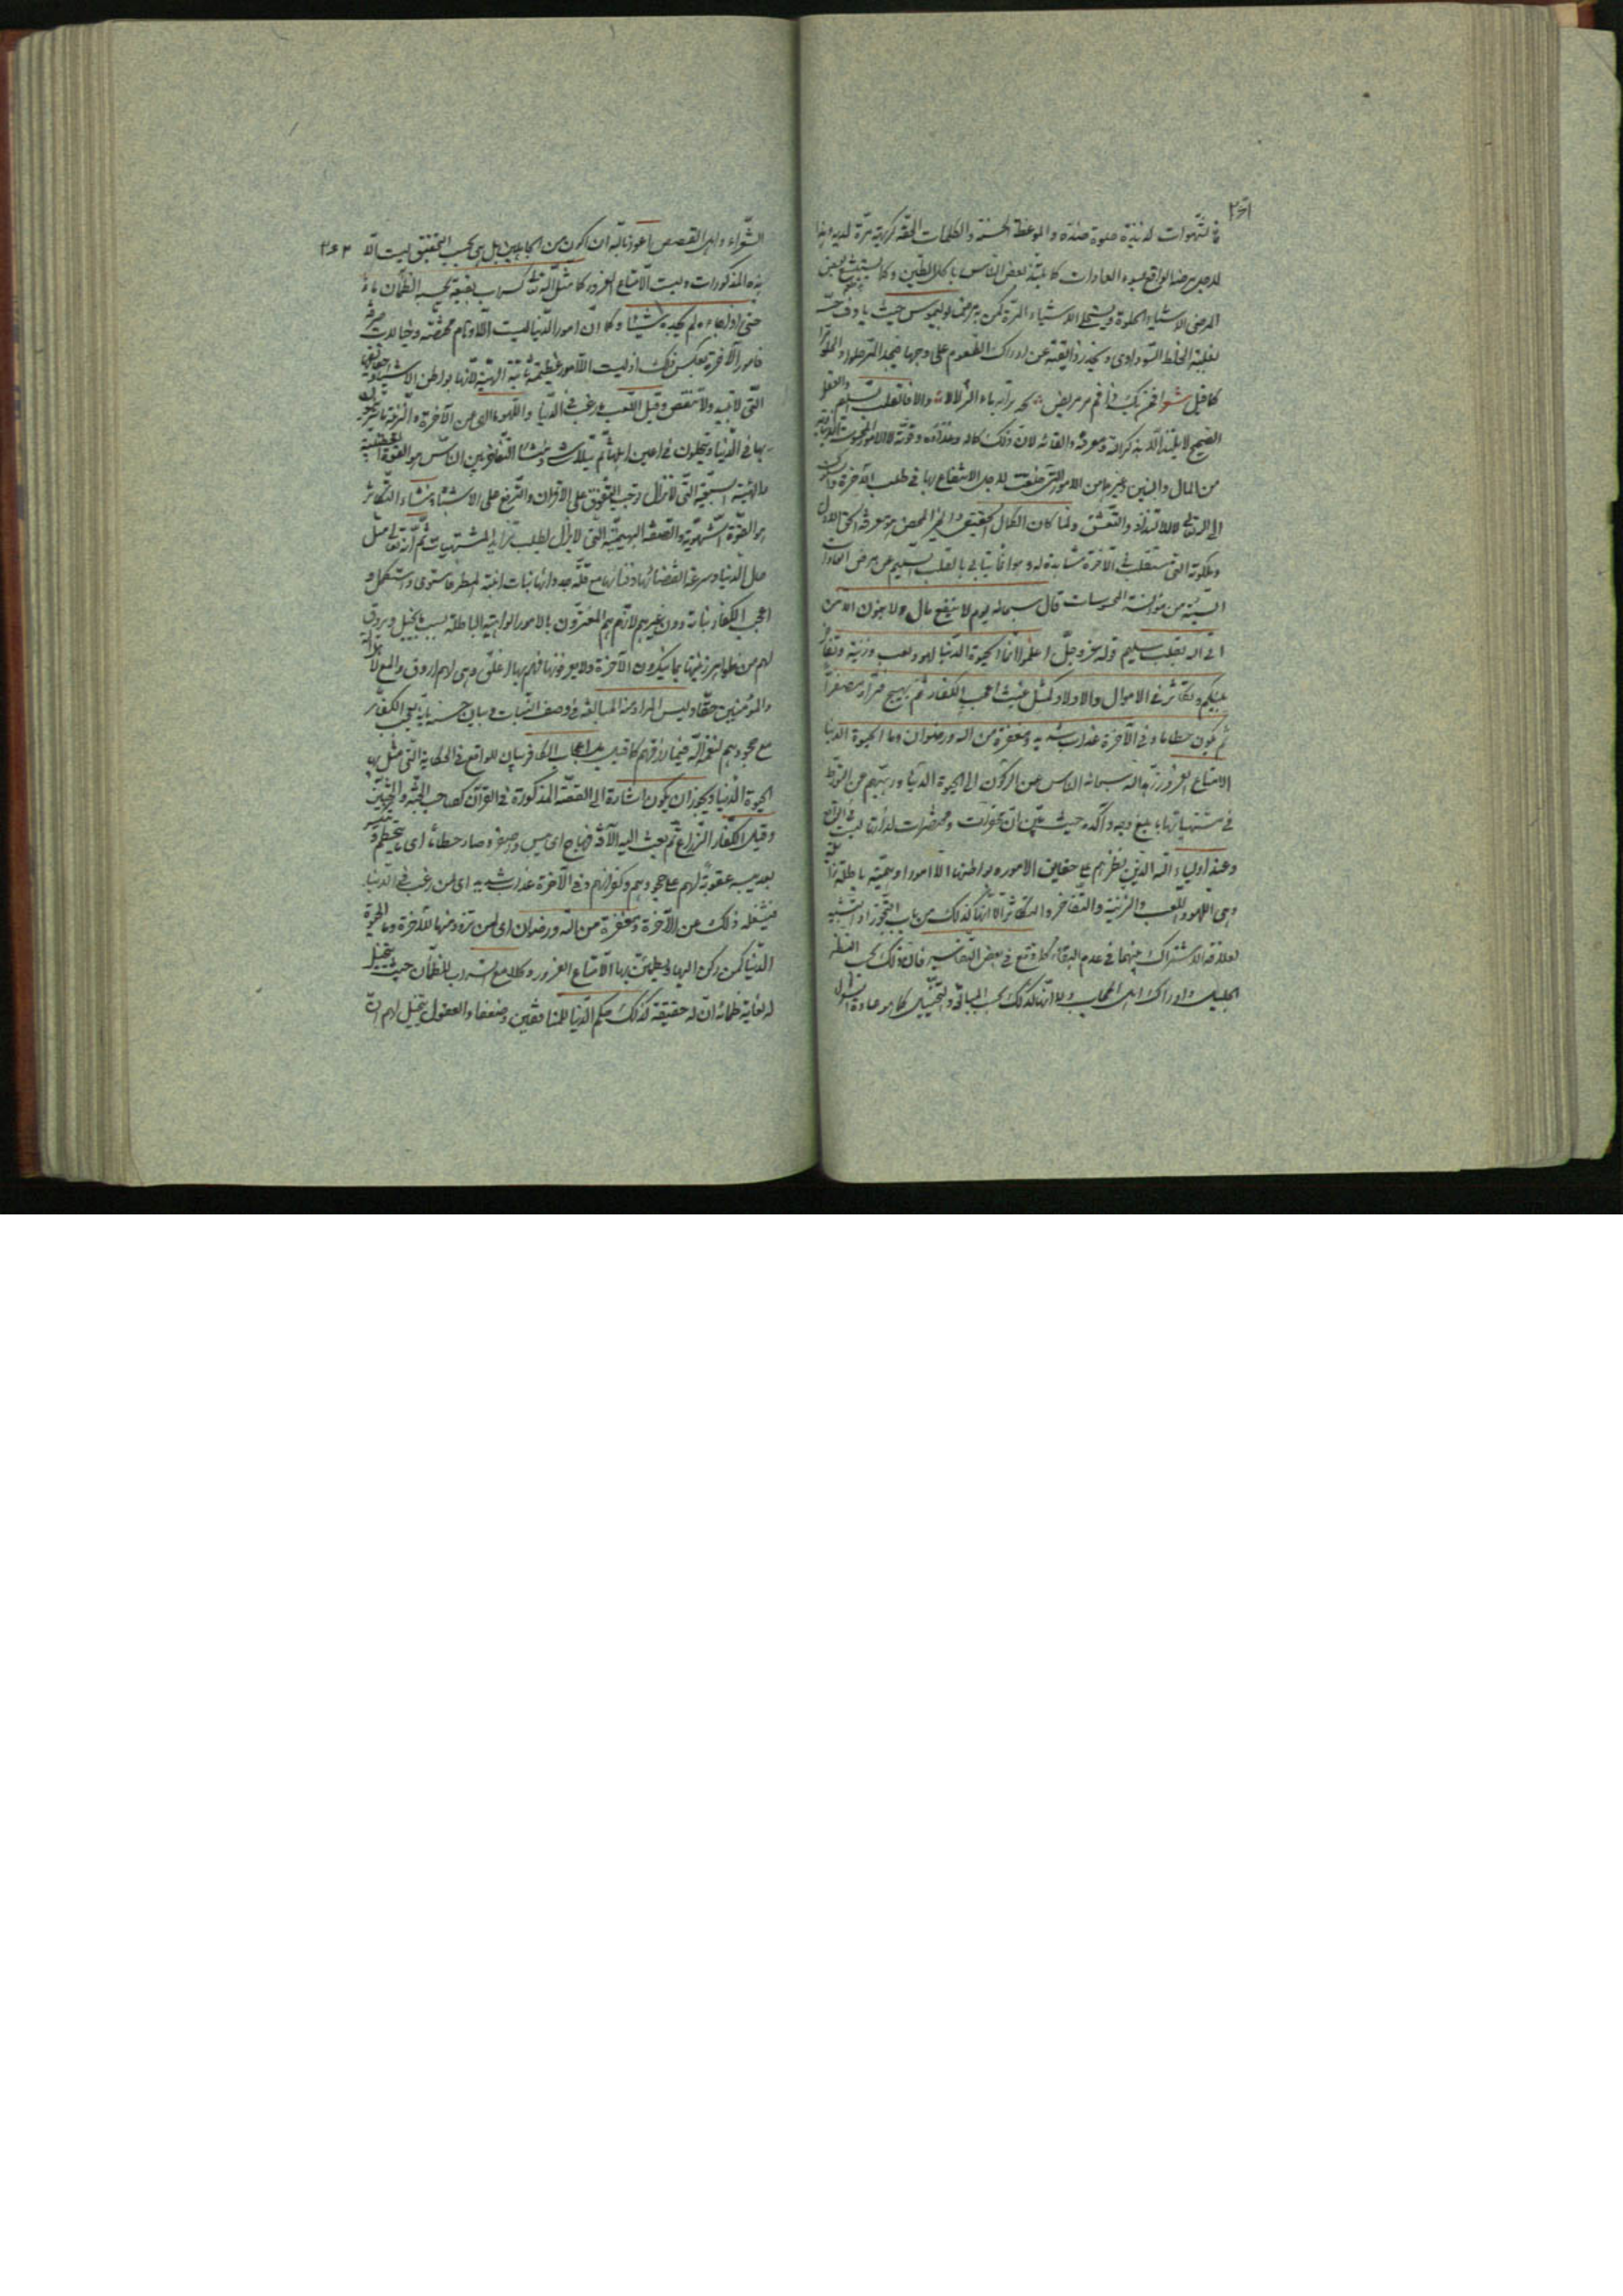 فالشهوات لذيذة حلوة عنده والموعظة الحسنة والكلمات الحقه كريهة مرّة لديه وهذا
لاجل مرضه الواقع لسوء العادات كما يلتذ بعض الناس باكل الطين وكما يستبشع بعض
المرضى الاشياء الحلوة ويستحلى الاشياء المرة كمن به مرض بوليموس حيث
لغلبة الخلط السوداوى ويخدر ذائقته عن ادراك الطعوم على وجهها فيجد المر حلوا والحلو مرا
كما قيل شعر ومن يك ذا فم مر مريض يجد مرا به الماء الزلالا والا فالقلب السليم والعقل
الصحيح لا يلتذ الا بذكر الله ومعرفته ولقائه لان ذلك كماله وغذاؤه وقوته لا الامور المحسوسة الدنياوية
من المال والبنين وغيرها من الامور التى خلقت لاجل الانتفاع بها فى طلب الآخرة والسلوك
الى الله تعالى لا للالتذاذ والتعشق ولما كان الكمال الحقيقى والخير المحض هو معرفة الحق الاول
وملكوته التى ستقلب فى الآخرة مشاهدة له وهو انما يتاتى بالقلب السليم عن مرض العادات
السيئة من مؤانسة المحسوسات قال سبحانه يوم لا ينفع مال ولا بنون الا من
اتى الله بقلب سليم قوله عز وجل اعلموا انما الحيوة الدنيا لهو ولعب وزينة وتفاخر
بينكم وتكاثر فى الاموال والاولاد كمثل غيث اعجب الكفار ثم يهيج فتراه مصفرا
ثم يكون حطاما وفى الآخرة عذاب شديد ومغفرة من الله ورضوان وما الحيوة الدنيا
الا متاع الغرور زهد الله سبحانه الناس عن الركون الى الحيوة الدنيا ورهبهم عن التورط
فى مشتهياتها بابلغ وجه وآكده حيث بيّن ان محقرات لذاتها ليست فى الواقع
وعند اولياء الله الذين نظرهم على حقايق الامور وبواطنها الا امورا وهمية باطلة زائلة
وهى اللهو واللعب والزينة والتفاخر والتكاثر لا انها كذلك من باب التجوز او التشبيه
لعلاقة الاشتراك بينهما فى عدم البقاء كما وقع فى بعض التفاسير فان ذلك بحسب النظر
الجليل وادراك اهل الحجاب ولا انها كذلك بحسب المبالغة والتخييل كما هو عادة اهل
الشعراء واهل القصص اعوذ بالله ان اكون من الجاهلين بل هى بحسب التحقيق ليست الا
هذه المذكورات وليست الا متاع الغرور كما مثل الله تعالى كسراب بقيعة يحسبه الظمآن ماء
حتى اذا جاءه لم يجده شيئا وكما ان امور الدنيا ليست الا اوهام محضة وخيالات صرفة
فامور الآخرة بعكس ذلك اذ ليست الا امور عظيمة ثابتة الهية لانها بواطن الاشياء وحقايقها
التى لا تبيد ولا تنقص وقيل اللعب ما رغب فى الدنيا واللهو ما الهى عن الآخرة والزينة ما يتزين
بها فى الدنيا ويتحلون فى اعين اهلها ثم يتلاشى ومنشأ التفاخر بين الناس هو القوة الغضبية
والهيئة السبعية التى لا تزال تحب التفوق على الاقران والترفع على الاشباه ومنشاء التكاثر
هو القوة الشهوية والصفة البهيمية التى لا يزال يطلب تزايد المشتهيات ثم انه تعالى مثل
حال الدنيا وسرعة انقضائها وفنائها مع قلة جدواها بنبات انبته المطر فاستوى واستكمل و
اعجب الكفار نباته دون غيرهم لانهم هم المغترون بالامور الواهية الباطلة بسبب تخيل ويروق
لهم من ظواهر زينتها بما ينكرون الآخرة ولا يعرفونها فهم بها اعلق وهى لهم اروق
والمؤمنين حقا وليس المراد منه المبالغة فى وصف النبات وبيان حسنه بانه يعجب الكفار
مع جحودهم لنعمة الله فيما رزقهم كما قيل بل اعجاب الكافر بيان للواقع فى الحكاية التى مثل بها
الحيوة الدنيا ويجوز ان يكون اشارة الى القصة المذكورة فى القرآن كصاحب الجنة والجنتين
وقيل الكفار الزراع ثم بعث اليه الآفة فهاج اى يبس واصفر وصار حطاما اى يتحطم وينكسر
بعد يبسه عقوبة لهم على جحودهم وكفرانهم وفى الآخرة عذاب شديد اى لمن رغب فى الدنيا
فيشغله ذلك عن الآخرة ومغفرة من الله ورضوان اى لمن تزود منها للآخرة وما الحيوة
الدنيا كمن ركن اليها ويطمئن بها الا متاع الغرور وكلامع السراب للظمآن حيث يتخيل
له لغاية ظمائه ان له حقيقة كذلك حكم الدنيا للمنافقين وضعفاء العقول يتخيل لهم ان